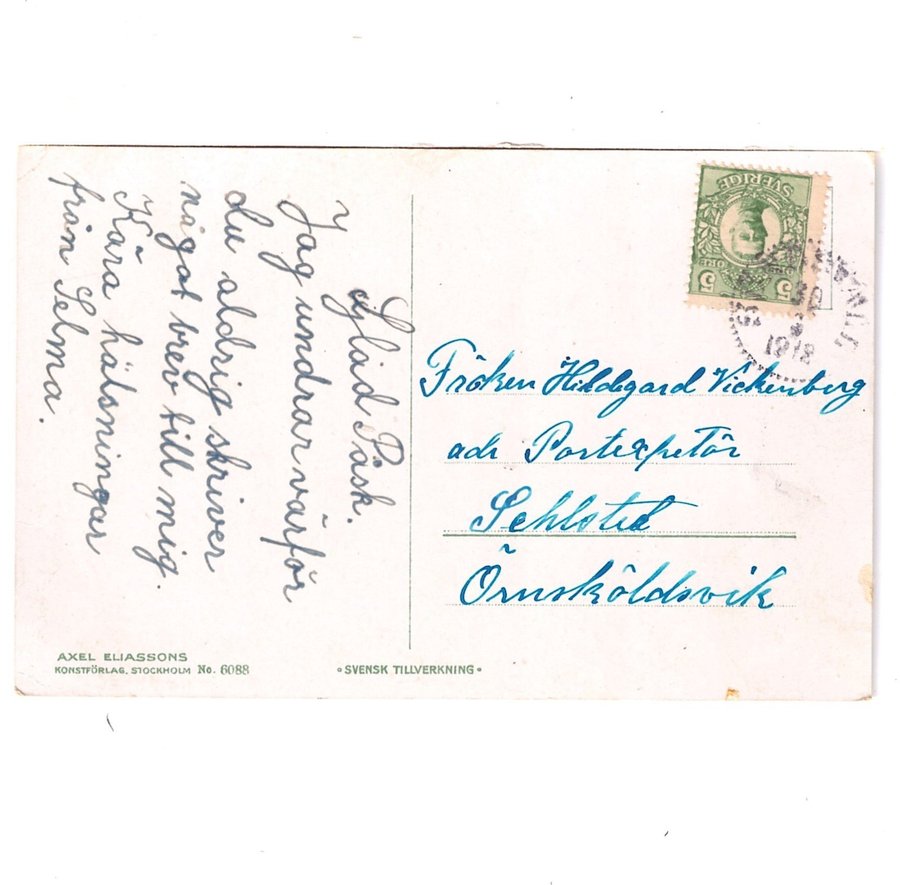 Glad Påsk.
Jag undrar varför
du aldrig skriver
något brev till mig.
Kära hälsningar
från Selma.
AXEL ELIASSONS
KONSTFÖRLAG, STOCKHOLM No. 6088
•SVENSK TILLVERKNING•
SVERIGE
5 ÖRE 5
1918
Fröken Hildegard Vickenberg
adr Postexpetör
Sehlsted
Örnsköldsvik